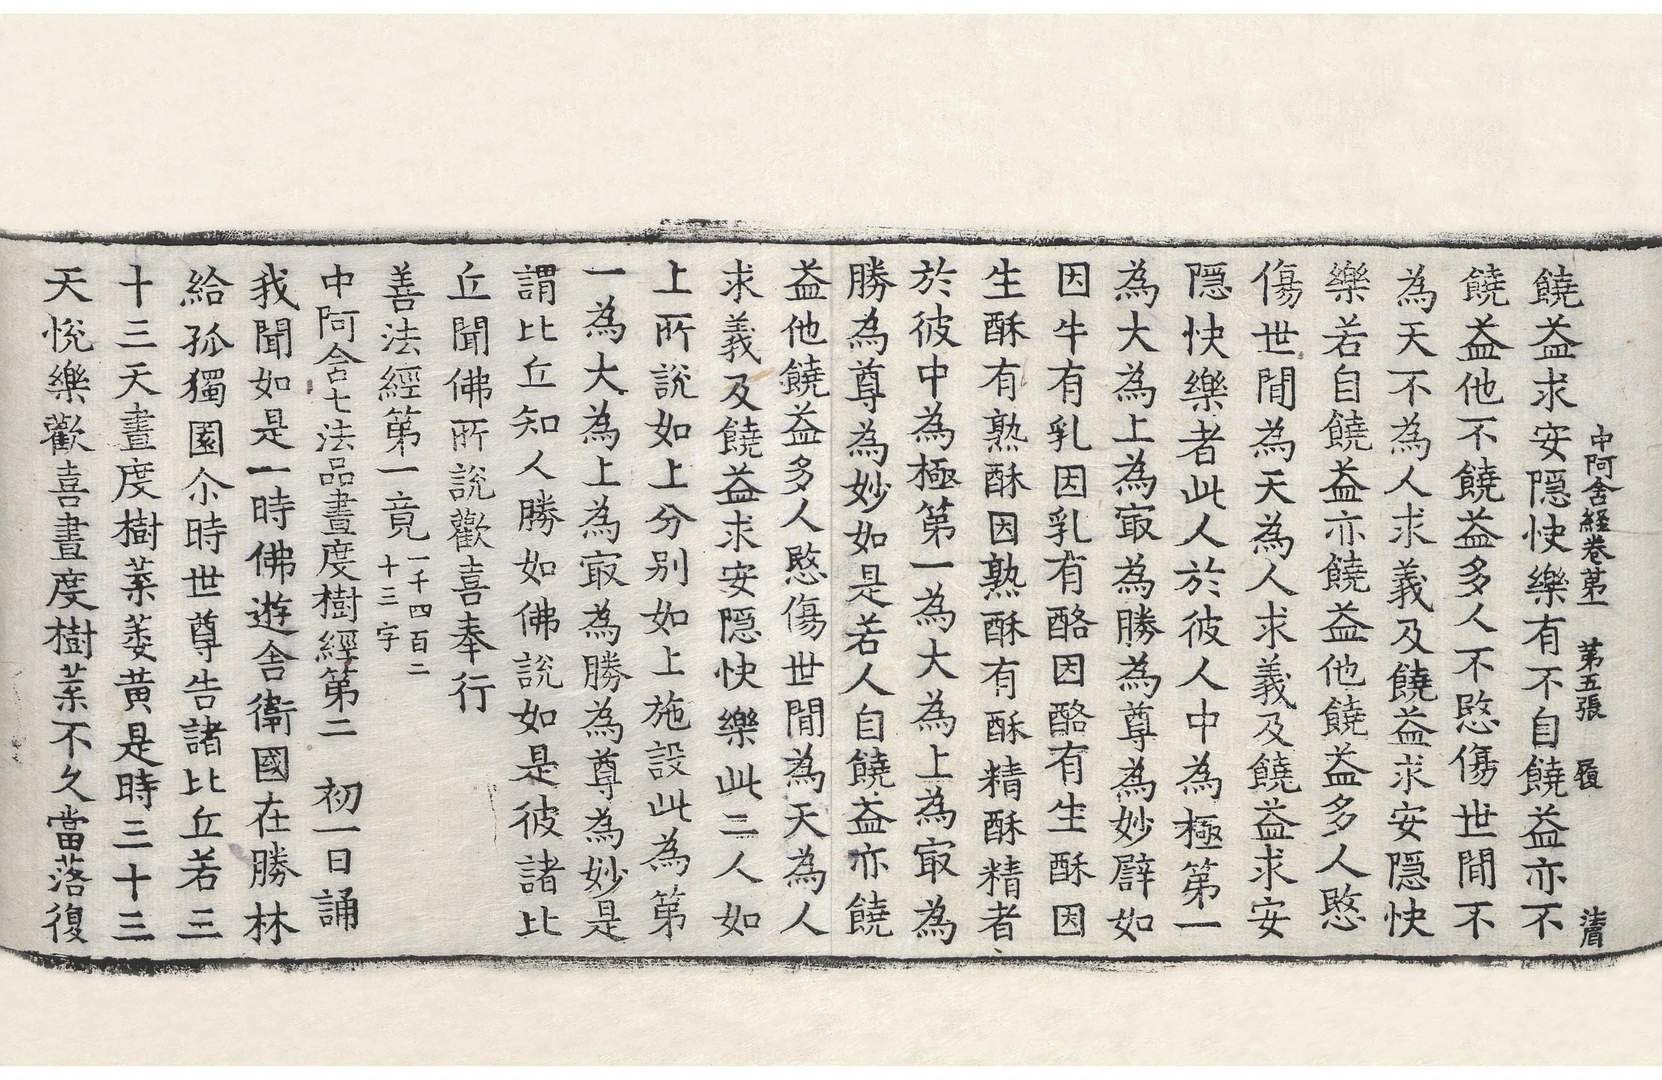 中阿含経卷第一　第五張　履　清眉
饒益求安隠快樂有不自饒益亦不
饒益他不饒益多人不愍傷世間不
為天不為人求義及饒益求安隠快
樂若自饒益亦饒益他饒益多人愍
傷世間為天為人求義及饒益求安
隠快樂者此人於彼人中為極第一
為大為上為㝡為勝為尊為妙譬如
因牛有乳因乳有酪因酪有生酥因
生酥有熟酥因熟酥有酥精酥精者
於彼中為極第一為大為上為㝡為
勝為尊為妙如是若人自饒益亦饒
益他饒益多人愍傷世間為天為人
求義及饒益求安隠快樂此二人如
上所說如上分別如上施設此為第
一為大為上為㝡為勝為尊為妙是
謂比丘知人勝如佛說如是彼諸比
丘聞佛所說歡喜奉行
善法經第一竟一千四百二十三字
中阿含七法品晝度樹經第二　初一日誦
我聞如是一時佛遊舍衛國在勝林
給孤獨園尒時世尊告諸比丘若三
十三天晝度樹葉萎黃是時三十三
天悅樂歡喜晝度樹葉不久當落復